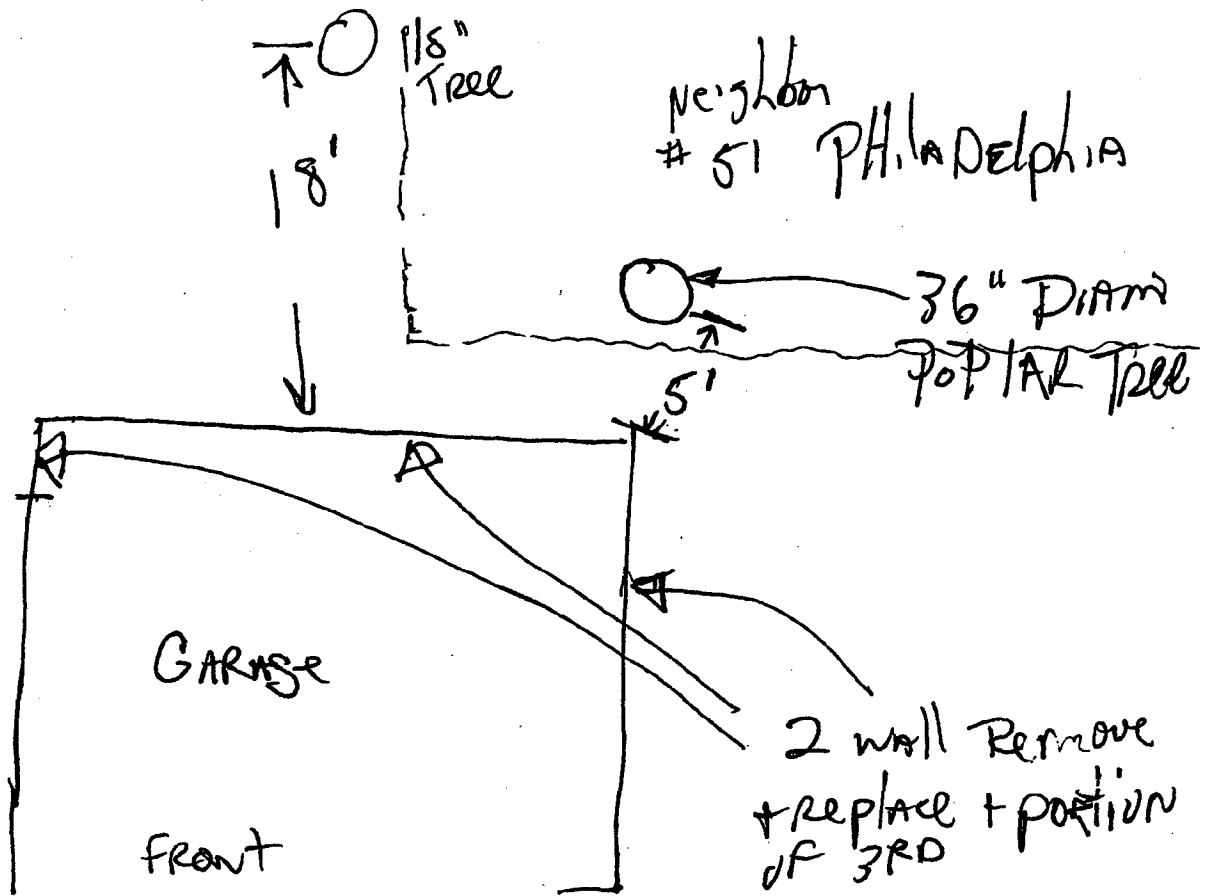 18"
TREE
Neighbor
# 51 PHILADELPHIA
18'
36" DIAM
POPLAR TREE
5'
GARAGE
2 wall Remove
+ REPLACE + PORTION
OF 3RD
FRONT